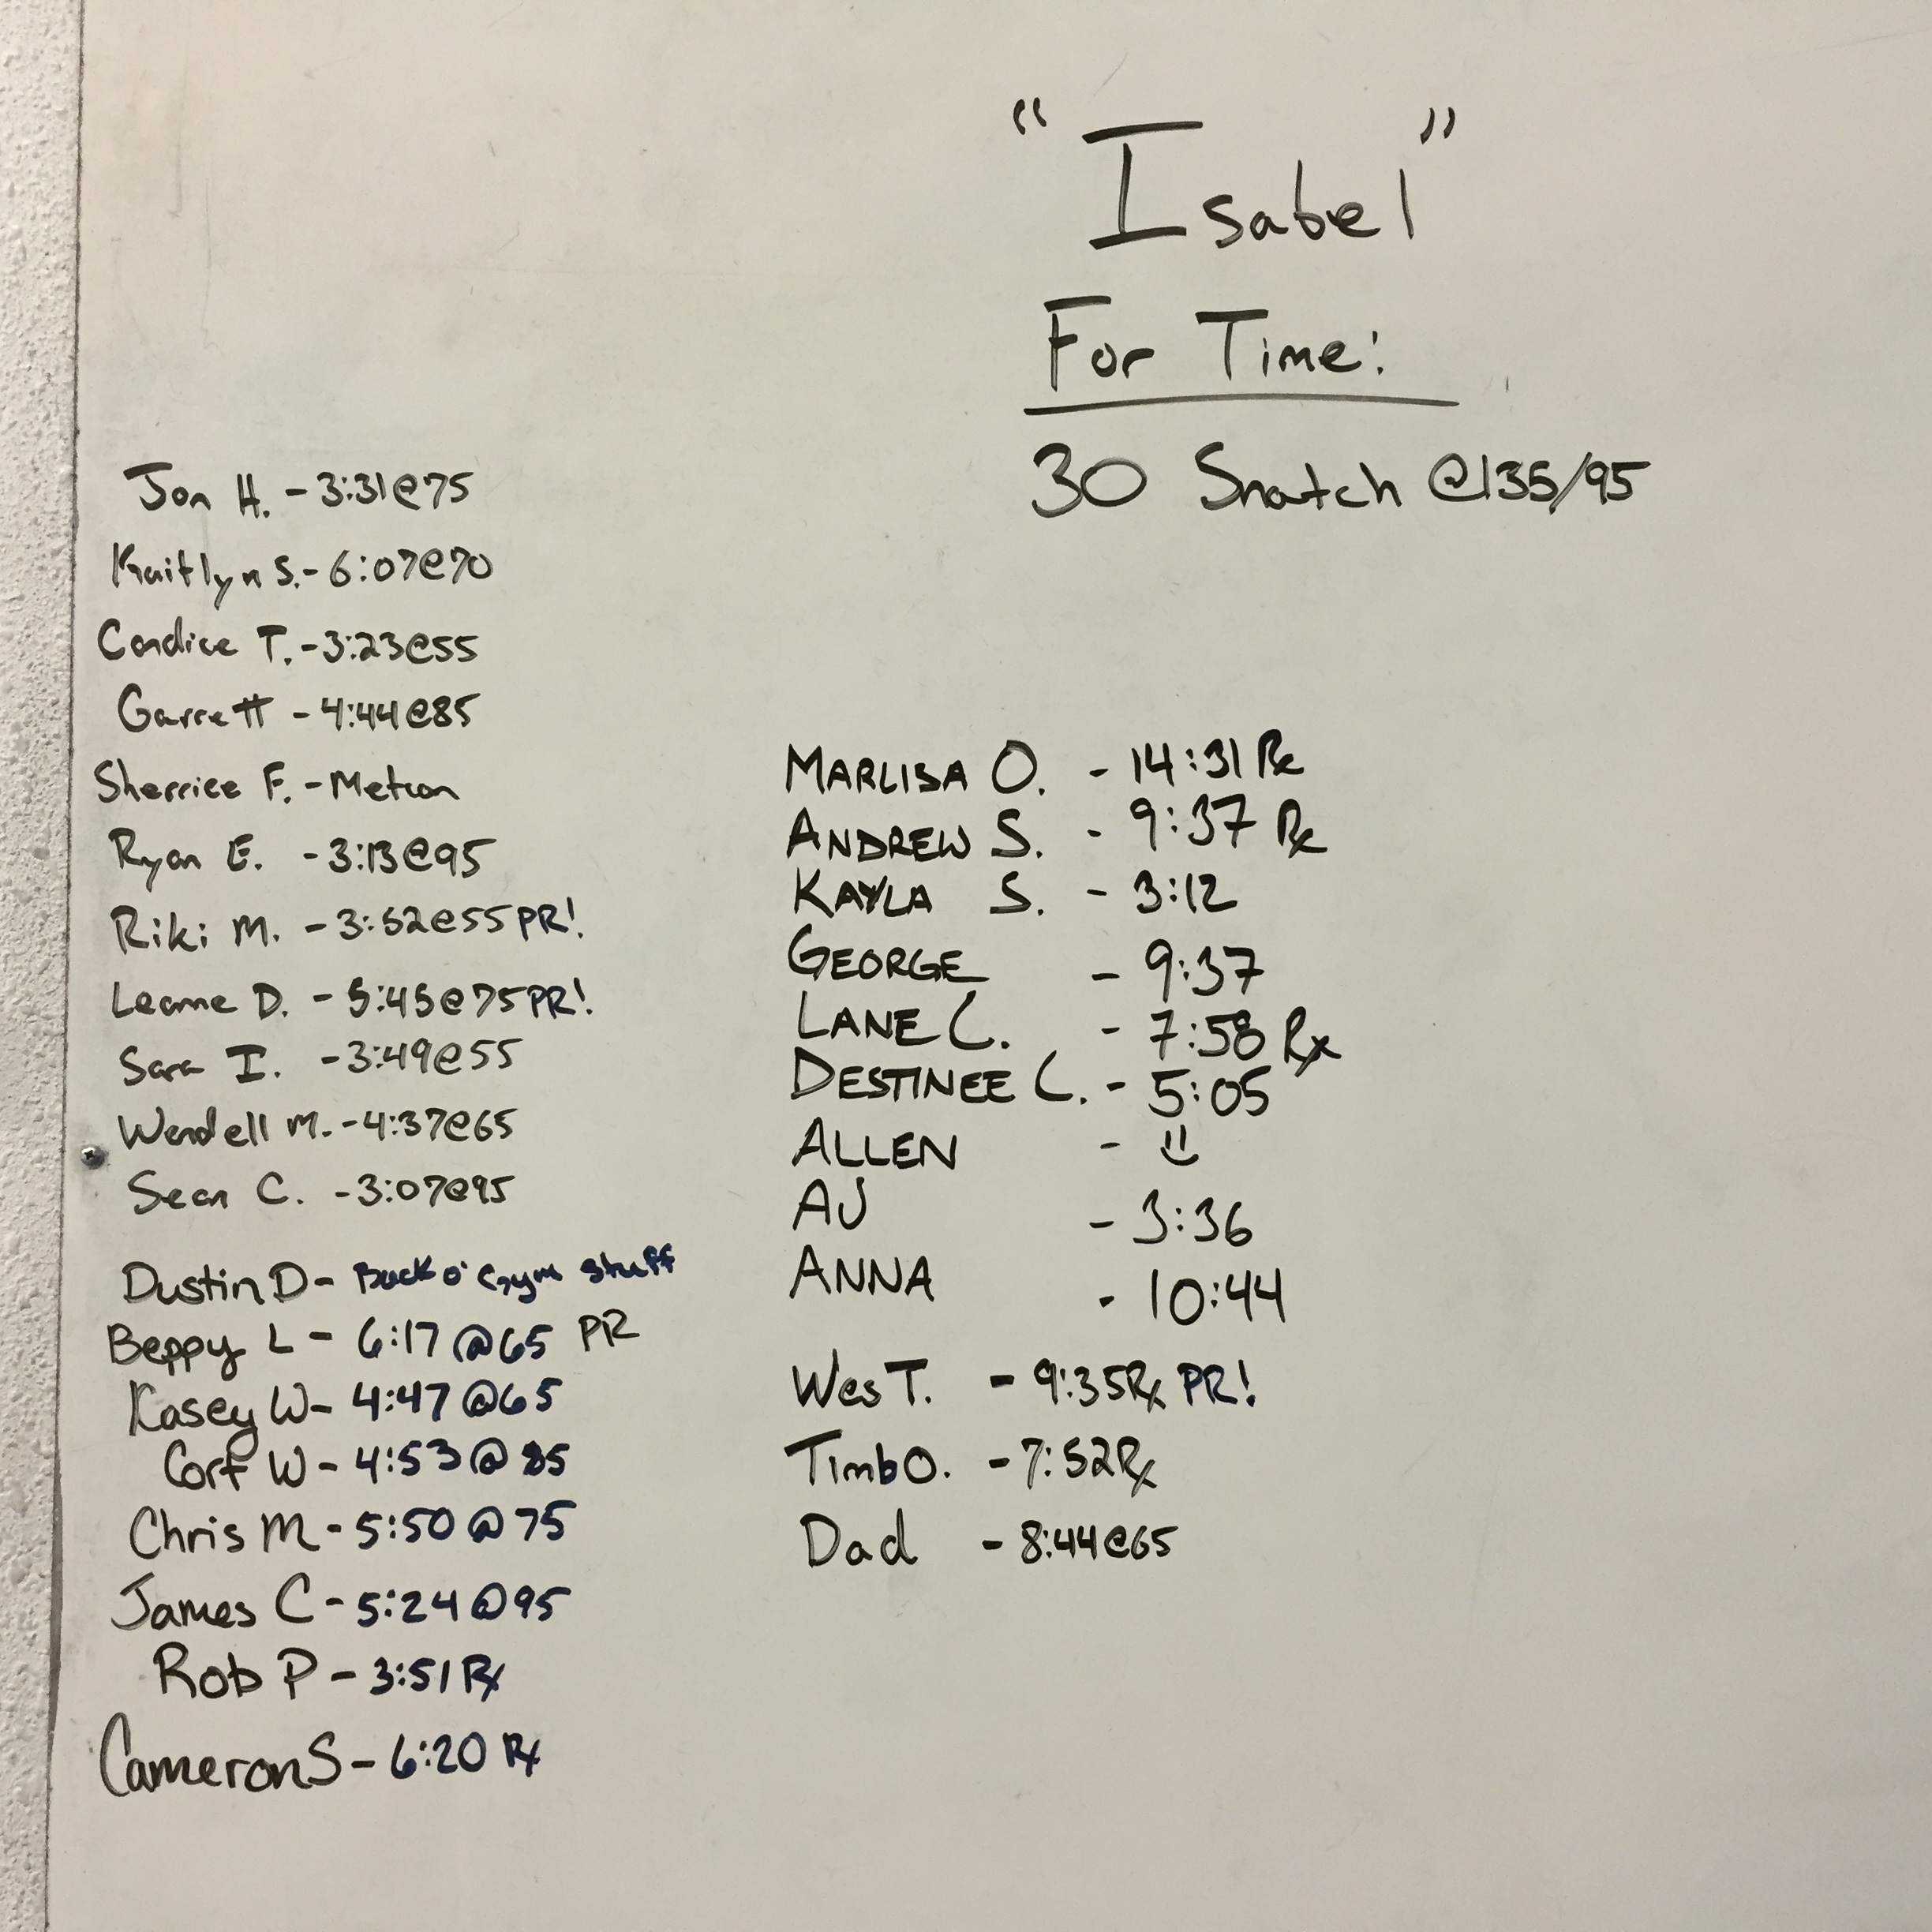 "Isabel"
For Time:
30 Snatch @135/95
Jon H. - 3:31@75
Kaitlyn S. - 6:07@70
Candice T. - 3:23@55
Garrett - 4:44@85
Sherrice F. - Metcon
Ryan E. - 3:13@95
Riki M. - 3:52@55 PR!
Leanne D. - 5:45@75 PR!
Sara I. - 3:49@55
Wendell M. - 4:37@65
Sean C. - 3:07@95
Dustin D - Back o' Gym stuff
Beppy L - 6:17 @65 PR
Kasey W - 4:47 @65
W - 4:53 @ 85
Chris M - 5:50 @ 75
James C - 5:24 @95
Rob P - 3:51 Rx
Cameron S - 6:20 Rx
MARLISA O. - 14:31 Rx
ANDREW S. - 9:37 Rx
KAYLA S. - 3:12
GEORGE - 9:37
LANE C. - 7:58 Rx
DESTINEE C. - 5:05
ALLEN - :)
AJ - 3:36
ANNA - 10:44
Wes T. - 9:35Rx PR!
Timbo O. - 7:52Rx
Dad - 8:44@65